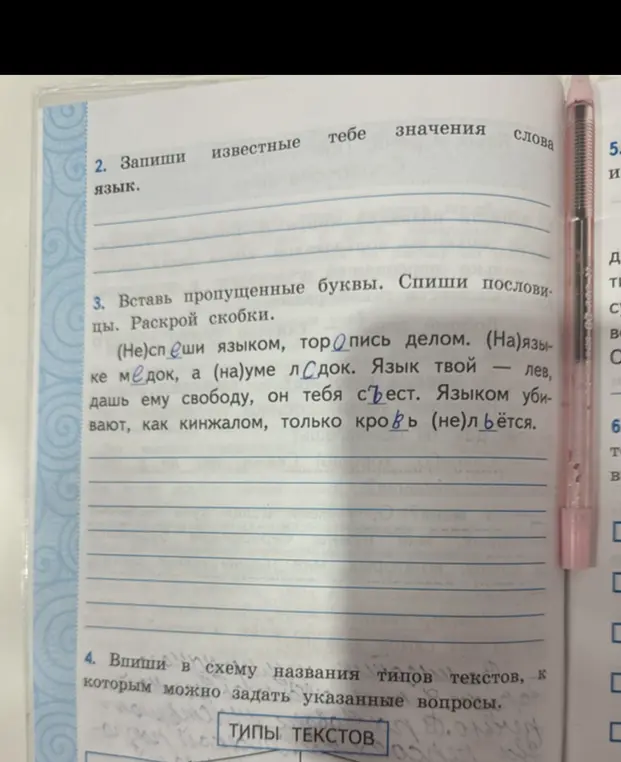 2. Запиши известные тебе значения слова
язык.
3. Вставь пропущенные буквы. Спиши послови-
цы. Раскрой скобки.
(Не)спеши языком, торопись делом. (На)язы-
ке медок, а (на)уме лёдок. Язык твой — лев,
дашь ему свободу, он тебя съест. Языком уби-
вают, как кинжалом, только кровь (не)льётся.
4. Впиши в схему названия типов текстов, к
которым можно задать указанные вопросы.
ТИПЫ ТЕКСТОВ
5.
и
д
т
с
в
С
6
т
в